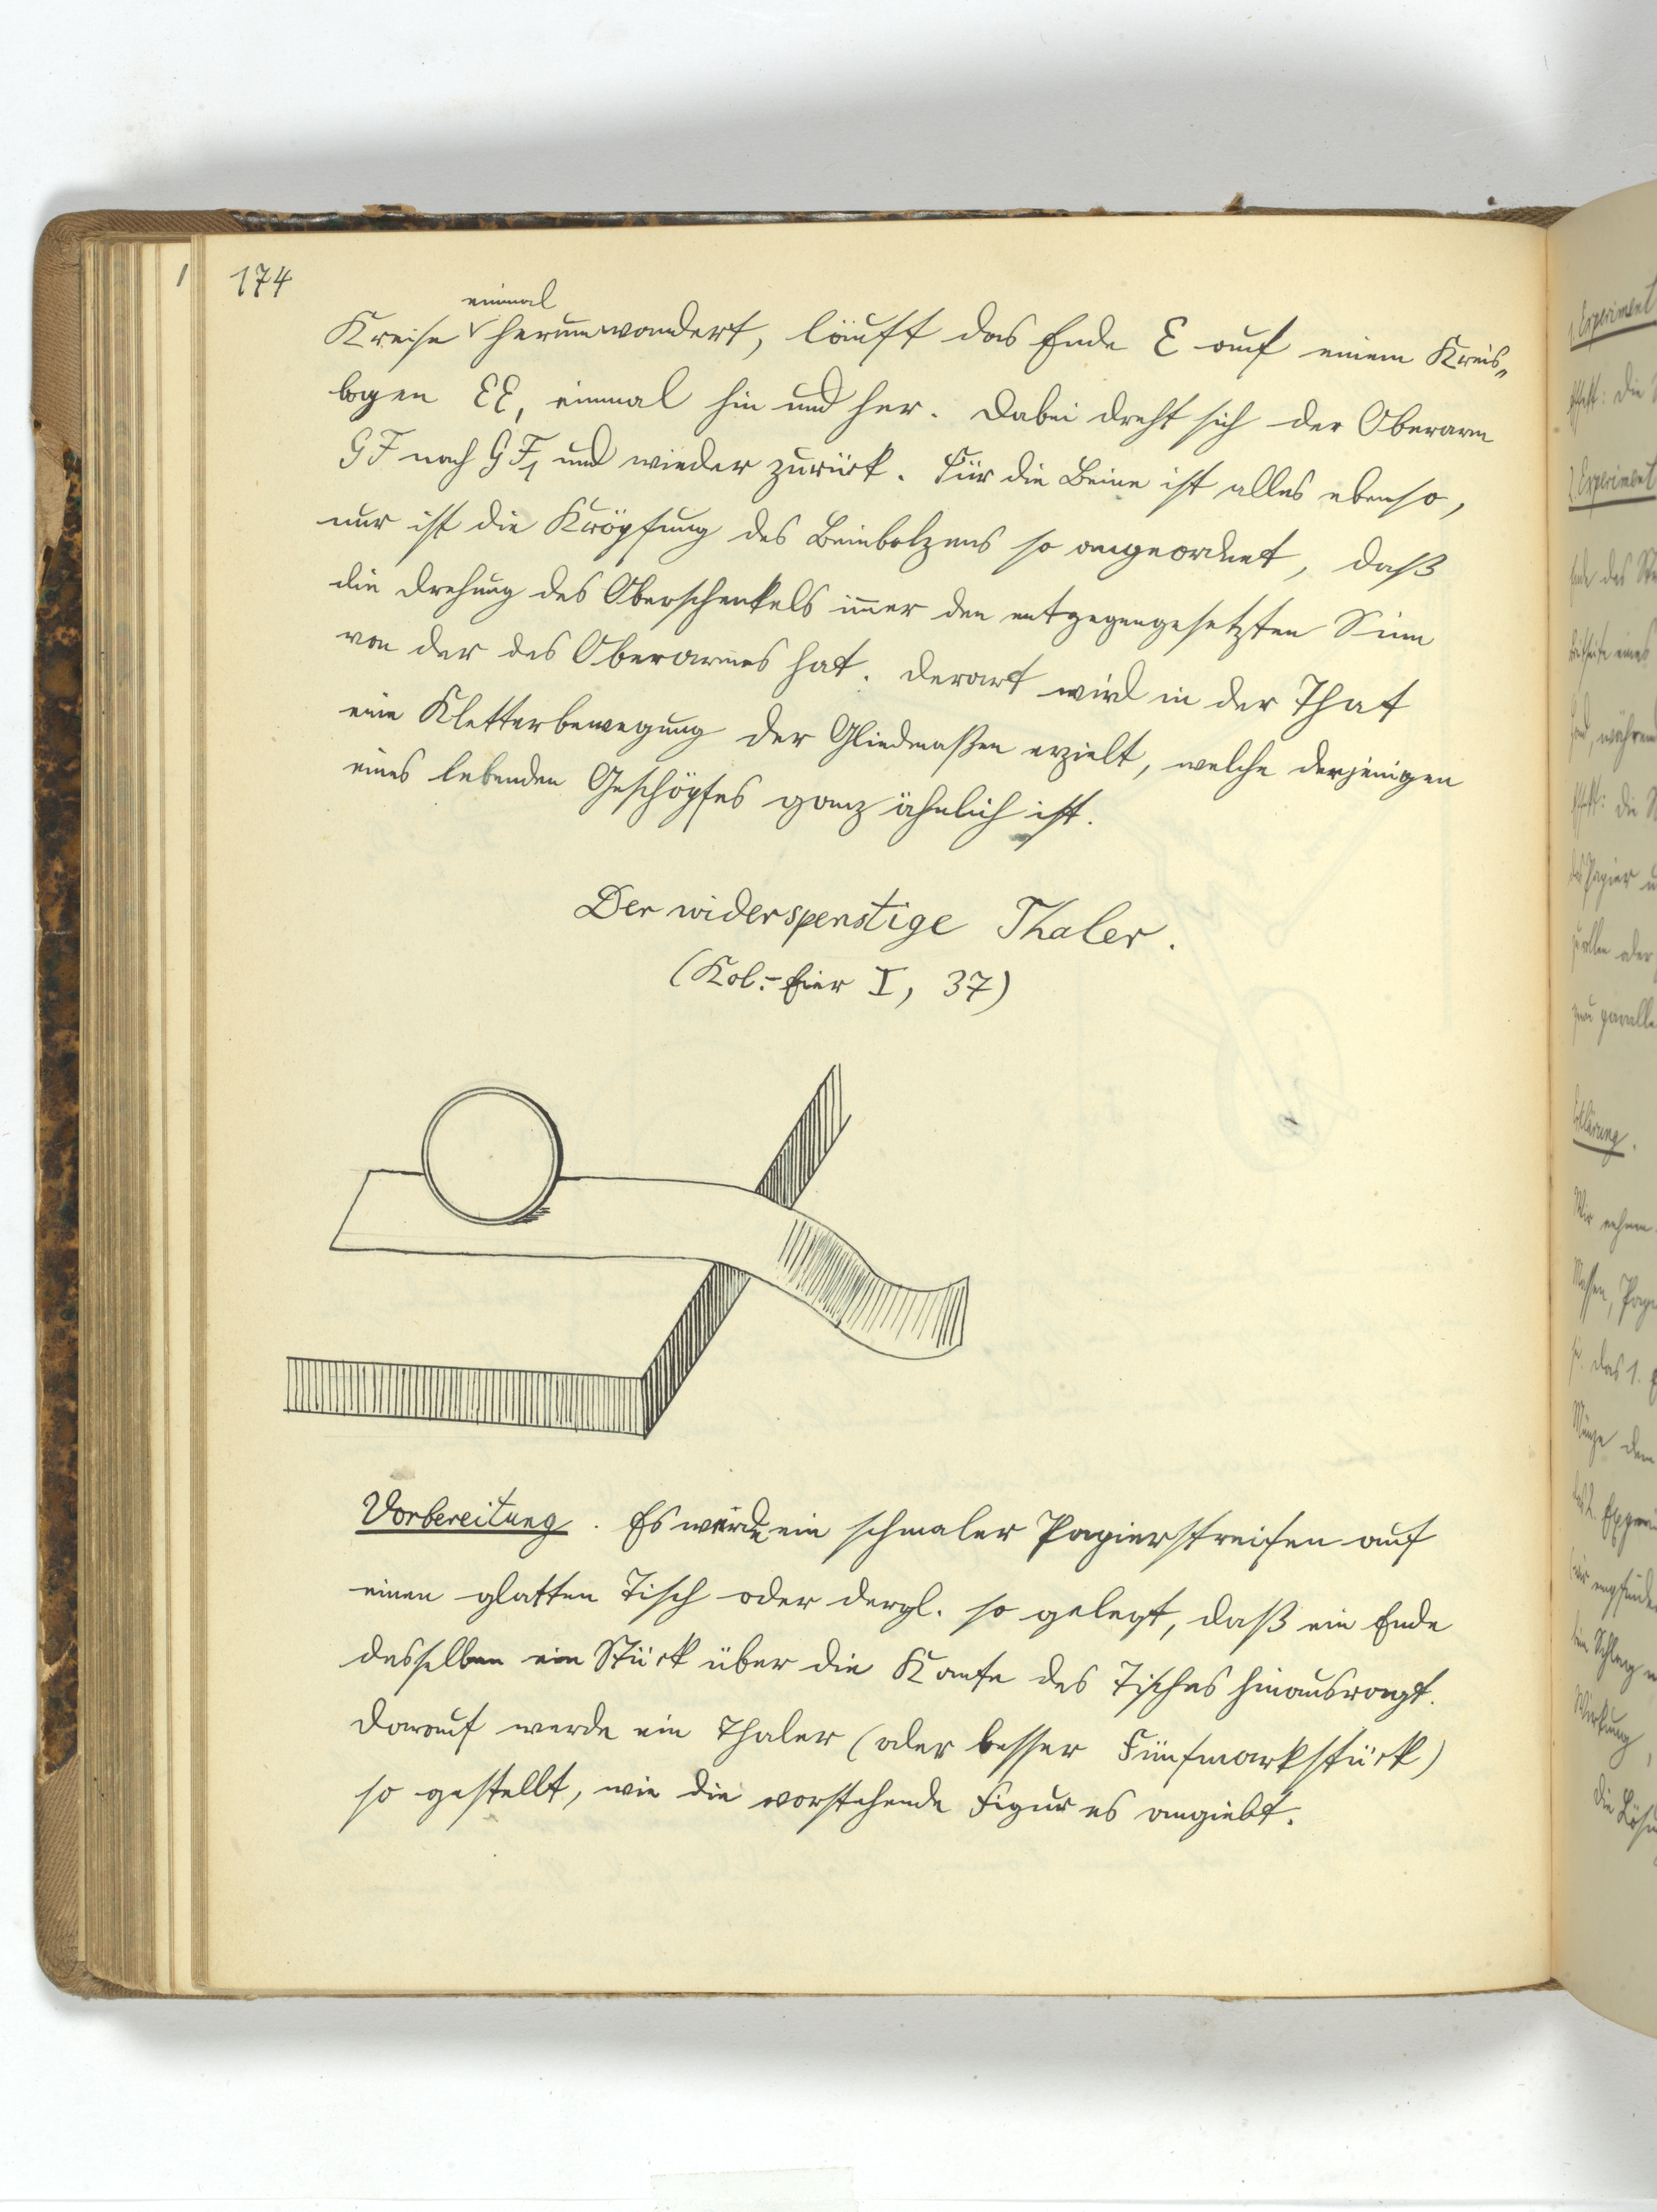 174
einmal
Kreise herumwandert, läuft das Ende E auf einem Kreis-
bogen EE, einmal hin und her. Dabei dreht sich der Oberarm
GF nach GF1 und wieder zurück. Für die Beine ist alles ebenso,
nur ist die Kröpfung des Beinbolzens so angeordnet, daß
die Drehung des Oberschenkels immer den entgegengesetzten Sinn
von der des Oberarmes hat. Derart wird in der That
eine Kletterbewegung der Gliedmaßen erzielt, welche derjenigen
eines lebenden Geschöpfes ganz ähnlich ist.
Der widerspenstige Thaler.
(Kol.-Eier I, 37)
Vorbereitung. Es werde ein schmaler Papierstreifen auf
einen glatten Tisch oder dergl. so gelegt, daß ein Ende
desselben ein Stück über die Kante des Tisches hinausragt.
Darauf werde ein Thaler (oder besser Fünfmarkstück)
so gestellt, wie die vorstehende Figur es angiebt.
1. Experiment
2. Experiment
Erklärung.
Wir nehmen